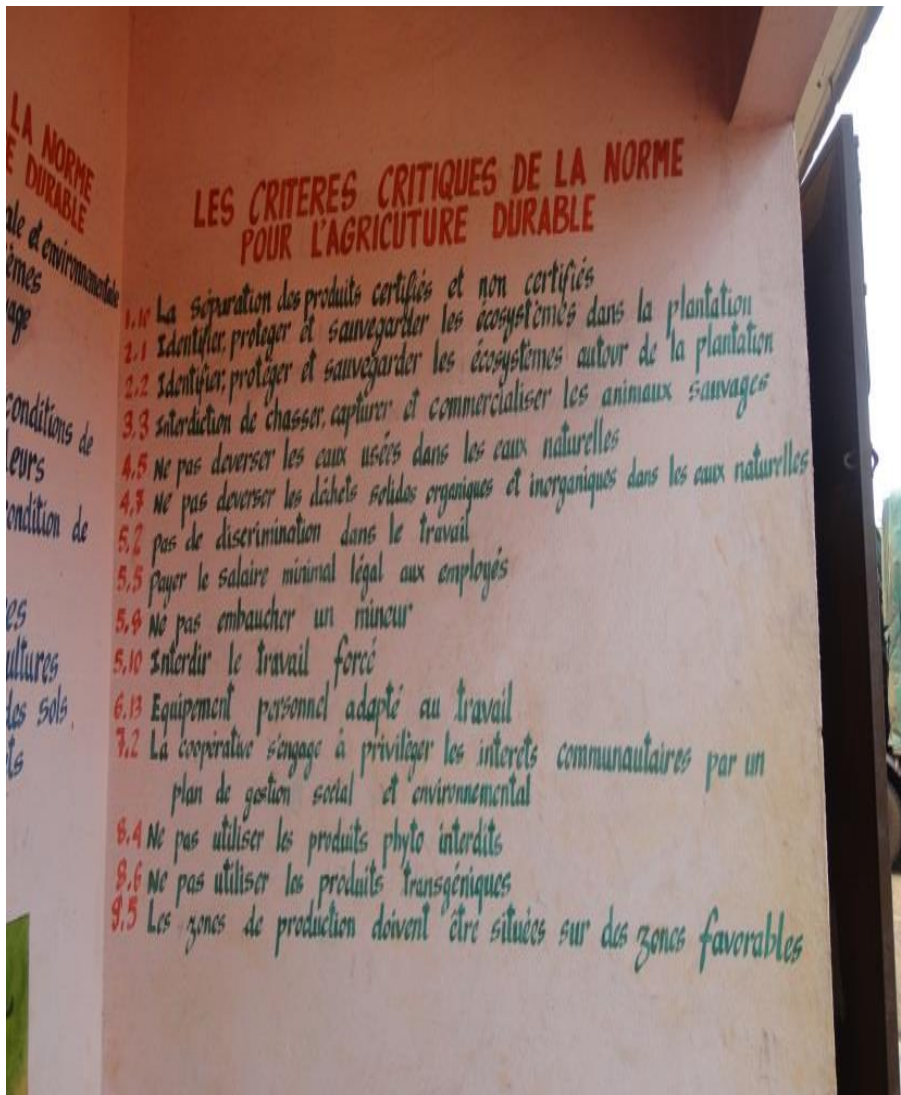 LA NORME
E DURABLE
ale et environnementale
èmes
vage
conditions de
leurs
condition de
es
ultures
des sols
ts
LES CRITERES CRITIQUES DE LA NORME
POUR L'AGRICUTURE DURABLE
1.10 La séparation des produits certifiés et non certifiés
2.1 Identifier, proteger et sauvegarder les écosystèmes dans la plantation
2.2 Identifier, protéger et sauvegarder les écosystèmes autour de la plantation
3.3 interdiction de chasser, capturer et commercialiser les animaux sauvages
4.5 Ne pas deverser les eaux usées dans les eaux naturelles
4.7 Ne pas deverser les déchets solides organiques et inorganiques dans les eaux naturelles
5.2 pas de discrimination dans le travail
5.5 Payer le salaire minimal légal aux employés
5.8 Ne pas embaucher un mineur
5.10 Interdir le travail forcé
6.13 Equipement personnel adapté au travail
7.2 La coopérative s'engage à privilèger les interets communautaires par un
plan de gestion social et environnemental
8.4 Ne pas utiliser les produits phyto interdits
8.6 Ne pas utiliser les produits transgéniques
9.5 Les zones de production doivent être situées sur des zones favorables